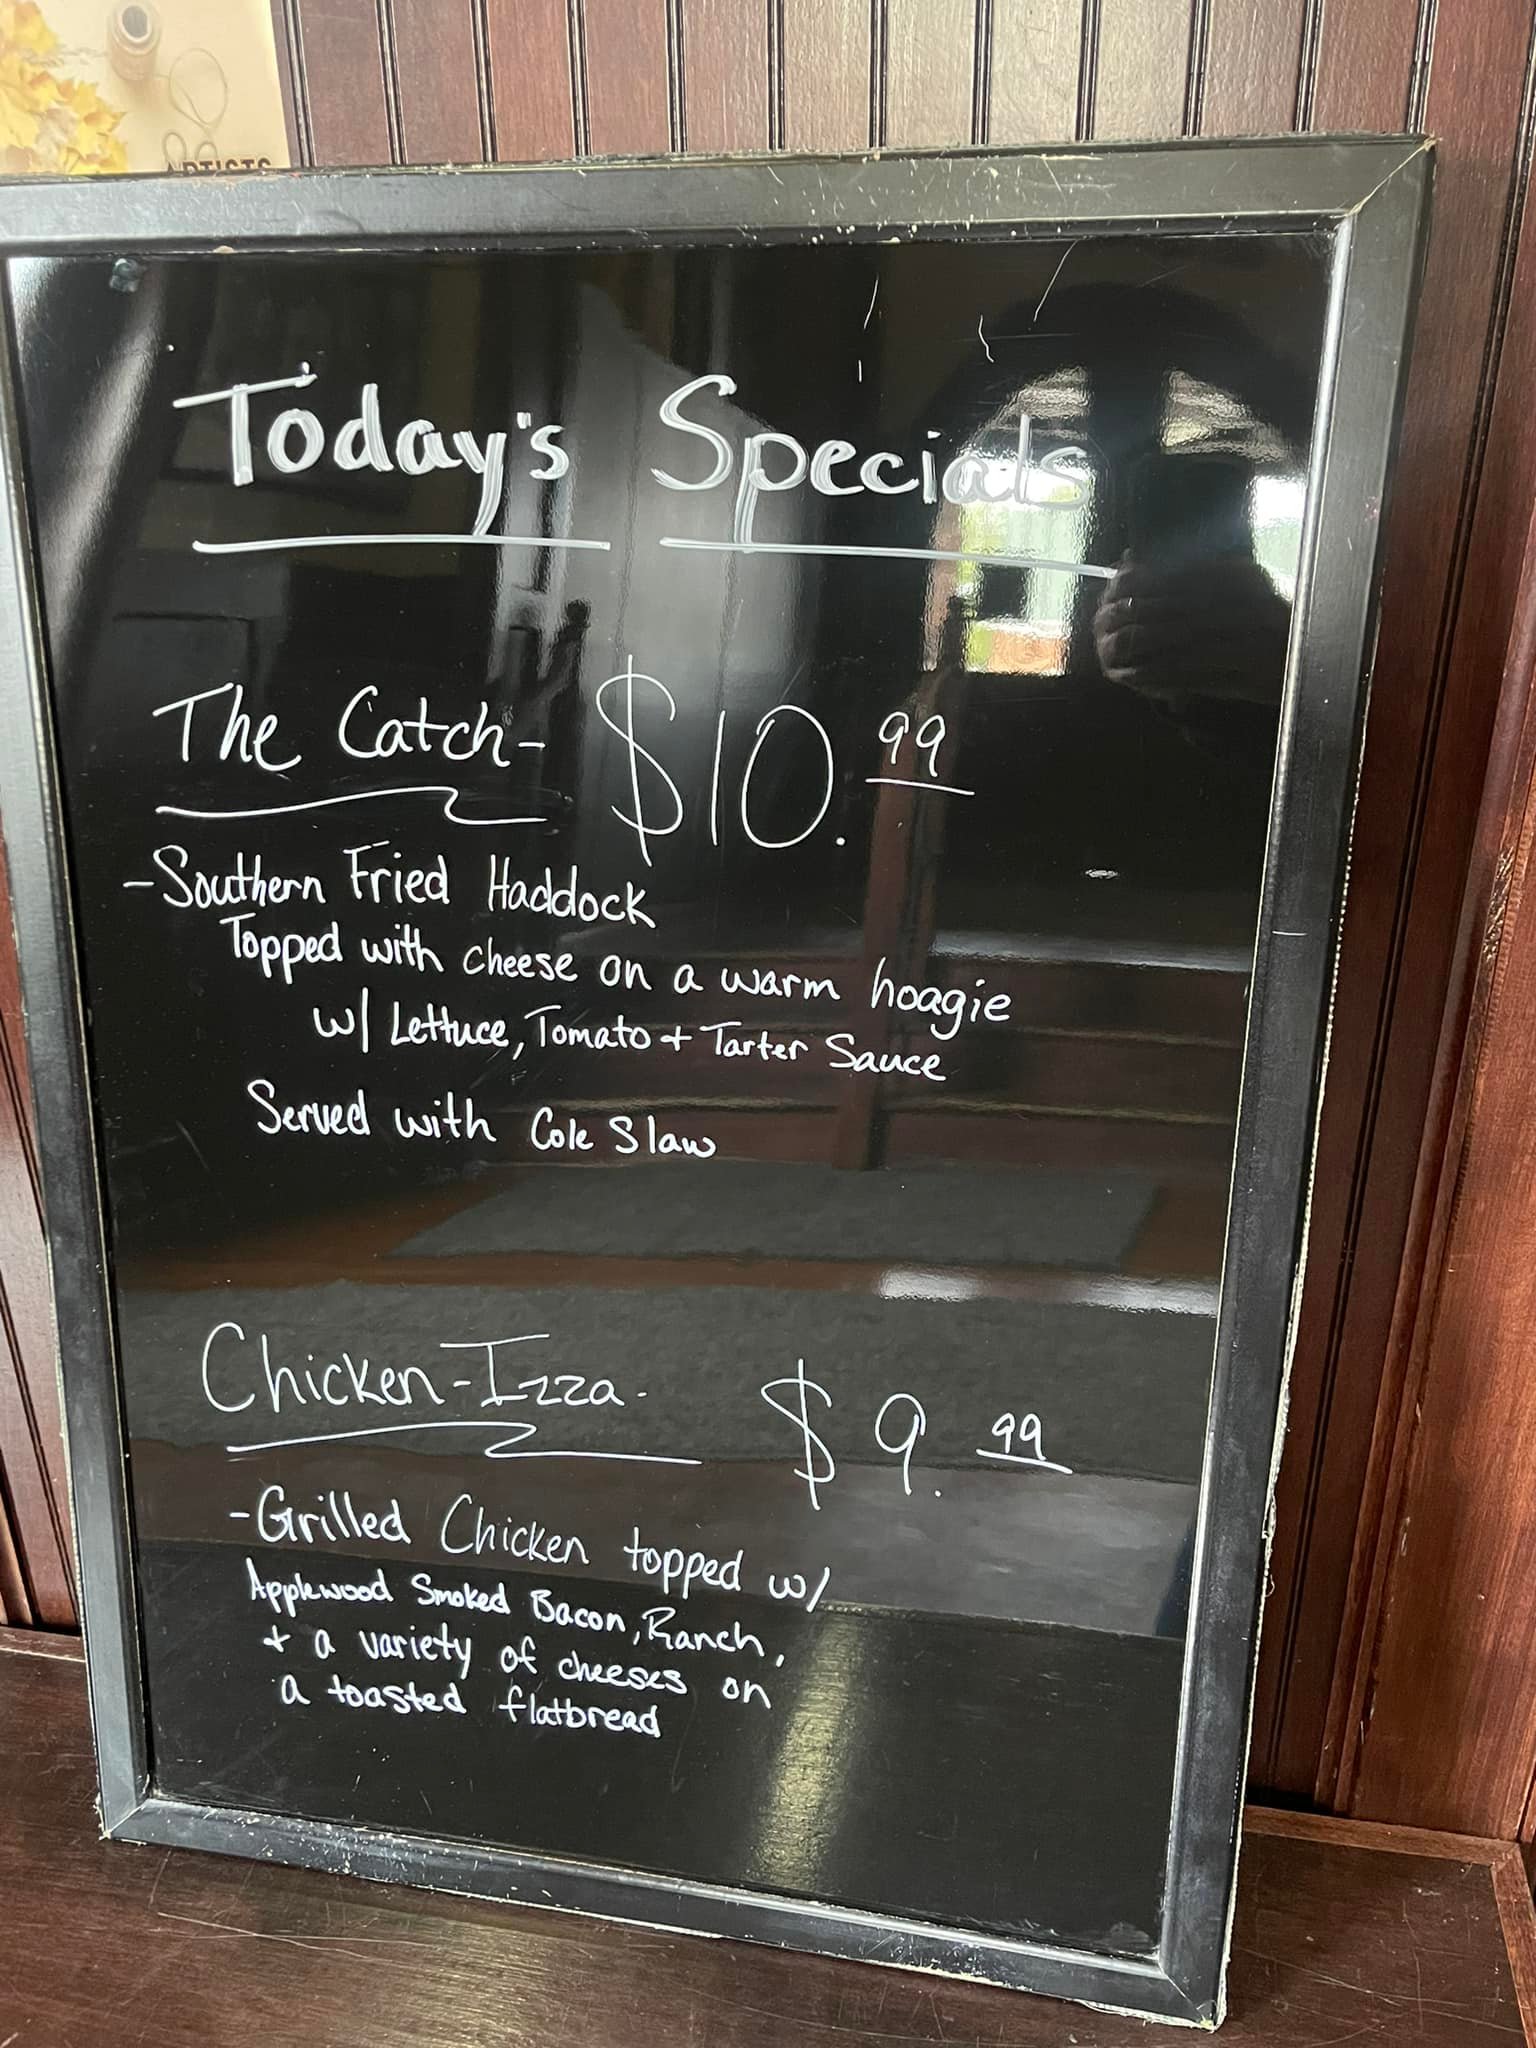 ARTISTS
Today's Specials
The Catch- $10.99
-Southern Fried Haddock
Topped with cheese on a warm hoagie
w/ Lettuce, Tomato + Tarter Sauce
Served with Cole Slaw
Chicken-Izza- $9.99
-Grilled Chicken topped w/
Applewood Smoked Bacon, Ranch,
+ a variety of cheeses on
a toasted flatbread